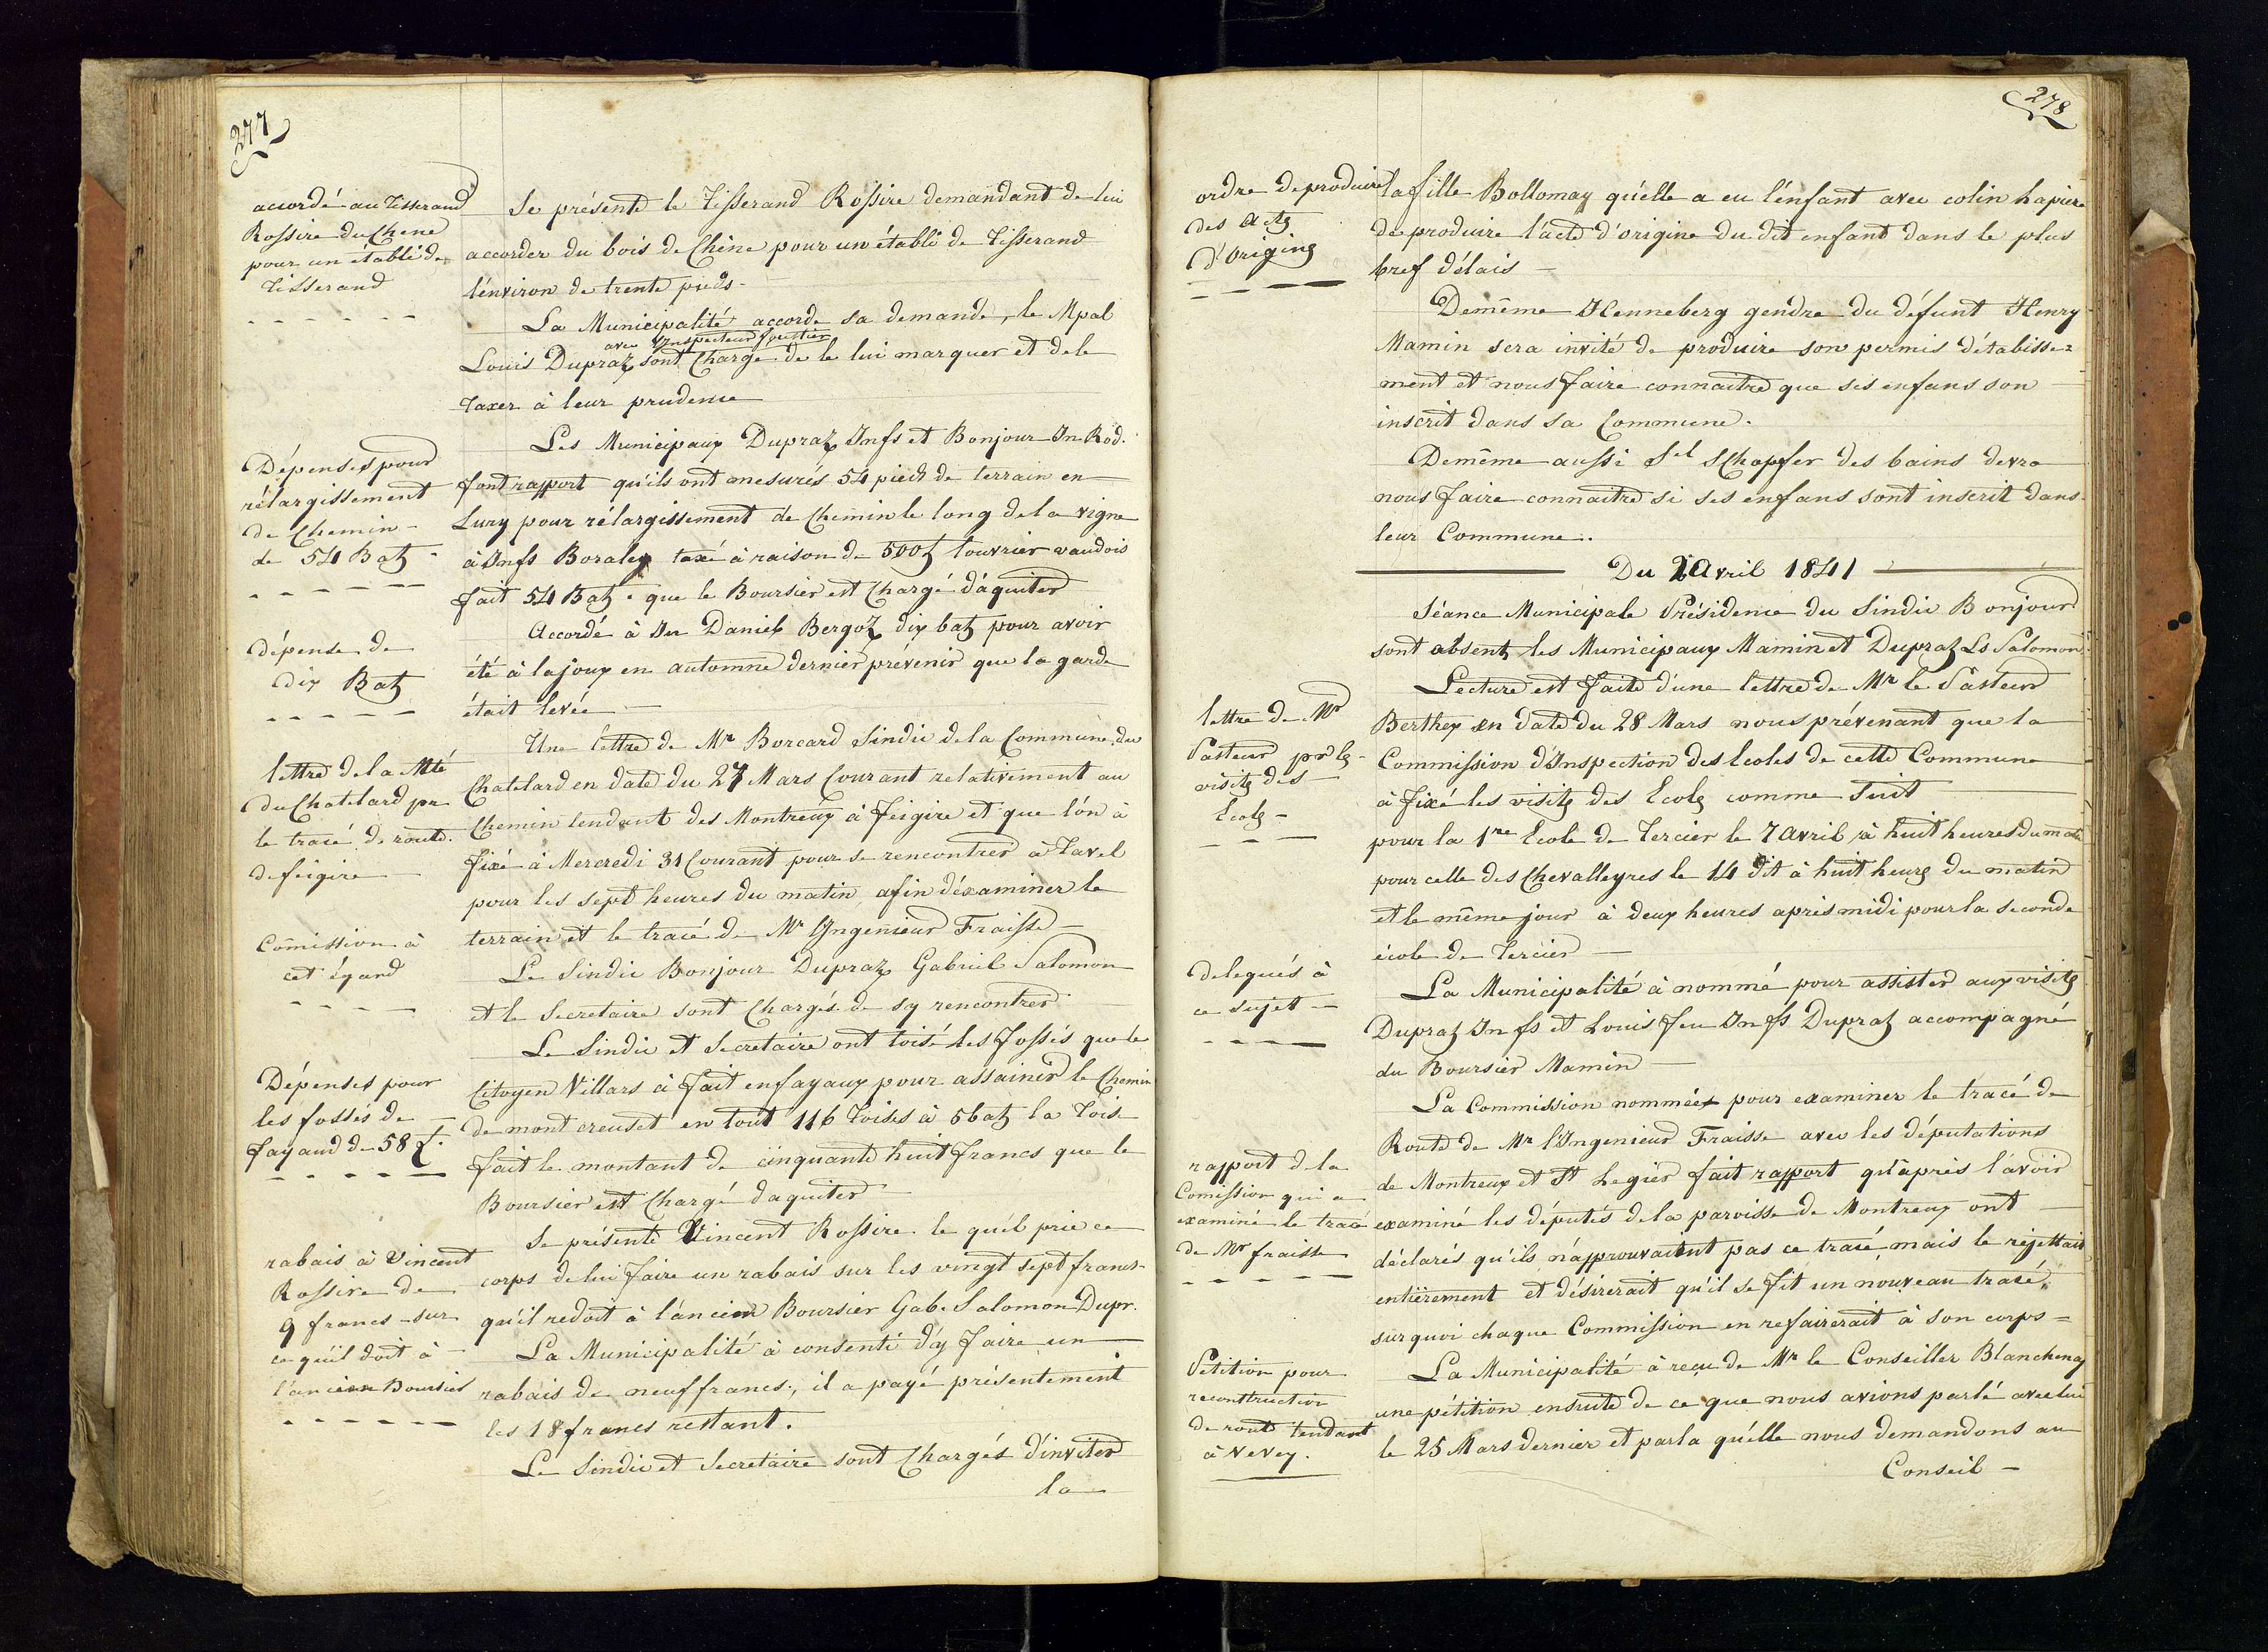 277
accordé au Tisserand
Rossire du Chene
pour un établi de
Tisserand
Se présente le Tisserand Rossire demandant de lui
accorder du bois de Chêne pour un établi de Tisserand
l'environ de trente pieds.
La Municipalité accorde sa demande, le Mpal
avec l'Inspecteur foustier
Louis Dupraz sont Chargé de le lui marquer et de le
Taxer à leur prudence
Dépenses pour
rélargissement
de Chemin
de 54 Batz
Les Municipaux Dupraz Jnfs et Bonjour Jn Rod.
font rapport qu'ils ont mesurés 54 pieds de terrain en
Lury pour rélargissement de Chemin le long de la vigne
à Jnfs Boraley taxé à raison de 500f l'ouvrier vaudois
fait 54 Batz que le Boursier est Chargé d'aquiter
dépense de
dix Batz
Accordé à Jn Daniel Bergoz dix batz pour avoir
été à la joux en automne dernier prévenir que la garde
était levée
lettre de la Mté
du Chatelard pr
le tracé de route
de feigire
Une lettre de Mr Borcard Sindic de la Commune du
Chatelard en date du 27 Mars Courant relativement au
Chemin tendant des Montreux à feigire et que l'on à
fixé à Mercredi 31 Courant pour se rencontrer à Tavel
pour les sept heures du matin, afin d'éxaminer le
terrain et le tracé de Mr l'Ingenieur Fraisse
Comission à
cet égard
Le Sindic Bonjour Dupraz Gabriel Salomon
et le Secretaire sont Chargés de sy rencontrer
Dépenses pour
les fossés de
fayaud de 58 f.
Le Sindic et Secretaire ont toisé les fossés que le
Citoyen Villars à fait en fayaux pour assainir le Chemin
de mont creuset en tout 116 Toises à 5 batz la Toise
fait le montant de cinquante huit francs que le
Boursier est Chargé d'aquiter
rabais à Vincent
Rossire de
9 francs sur
ce qu'il doit à
l'ancien Boursier
Se présente Vincent Rossire le quél prie ce
corps de lui faire un rabais sur les vingt sept francs
qu'il redoit à l'ancien Boursier Gab. Salomon Dupr.
La Municipalité à consenti d'y faire un
rabais de neuf francs, il a payé présentement
les 18 francs restant.
Le Sindic et Secretaire sont Chargés d'inviter
la
278
ordre de produire
des Actes
d'Origine
la fille Bollomay qu'elle a eu l'enfant avec colin
de produire l'acte d'origine du dit enfant dans le plus
bref délais
Demême Henneberg gendre du défunt Henry
Mamin sera invité de produire son permis d'étabisse=
ment et nous faire connaitre que ses enfans son
inscrit dans sa Commune.
Demême aussi Sel SChopfer des bains devra
nous faire connaitre si ses enfans sont inscrit dans
leur Commune.
Du 2 Avril 1841
Séance Municipale Présidence du Sindic Bonjour
sont absentz les Municipaux Mamin et Dupraz Ls Salomon
lettre de Mr
Pasteur pr les
visites des
Ecoles
Lecture est faite d'une lettre de Mr le Pasteur
Berthex en date du 28 Mars nous prévenant que la
Commission d'Inspection des Ecoles de cette Commune
à fixé les visites des Ecoles comme Suit
pour la 1re Ecole de Tercier le 7 Avril à huit heures du matin
pour celle des Chevalleyres le 14 dit à huit heures du matin
et le même jour à deux heures après midi pour la seconde
école de Tercier
delegués à
ce sujet
La Municipalité à nommé pour assister aux visites
Dupraz Jn fs et Louis feu Jn fs Dupraz accompagné
du Boursier Mamin
rapport de la
Comission qui a
examiné le tracé
de Mr fraisse
La Commission nommée pour examiner le tracé de
Route de Mr l'Ingenieur Fraisse avec les députations
de Montreux et St Legier fait rapport qu'après l'avoir
examiné les députés de la paroisse de Montreux ont
déclarés qu'ils n'approuvaient pas ce tracé, mais le réjettait
entièrement et désirerait qu'il se fit un nouveau tracé,
sur quoi chaque Commission en refairerait à son corps =
Petition pour
reconstruction
de route tendant
à Vevey.
La Municipalité à reçu de Mr le Conseiller Blanchenay
une pétition ensuite de ce que nous avions parlé avec lui
le 25 Mars dernier et par la qu'elle nous demandons au
Conseil